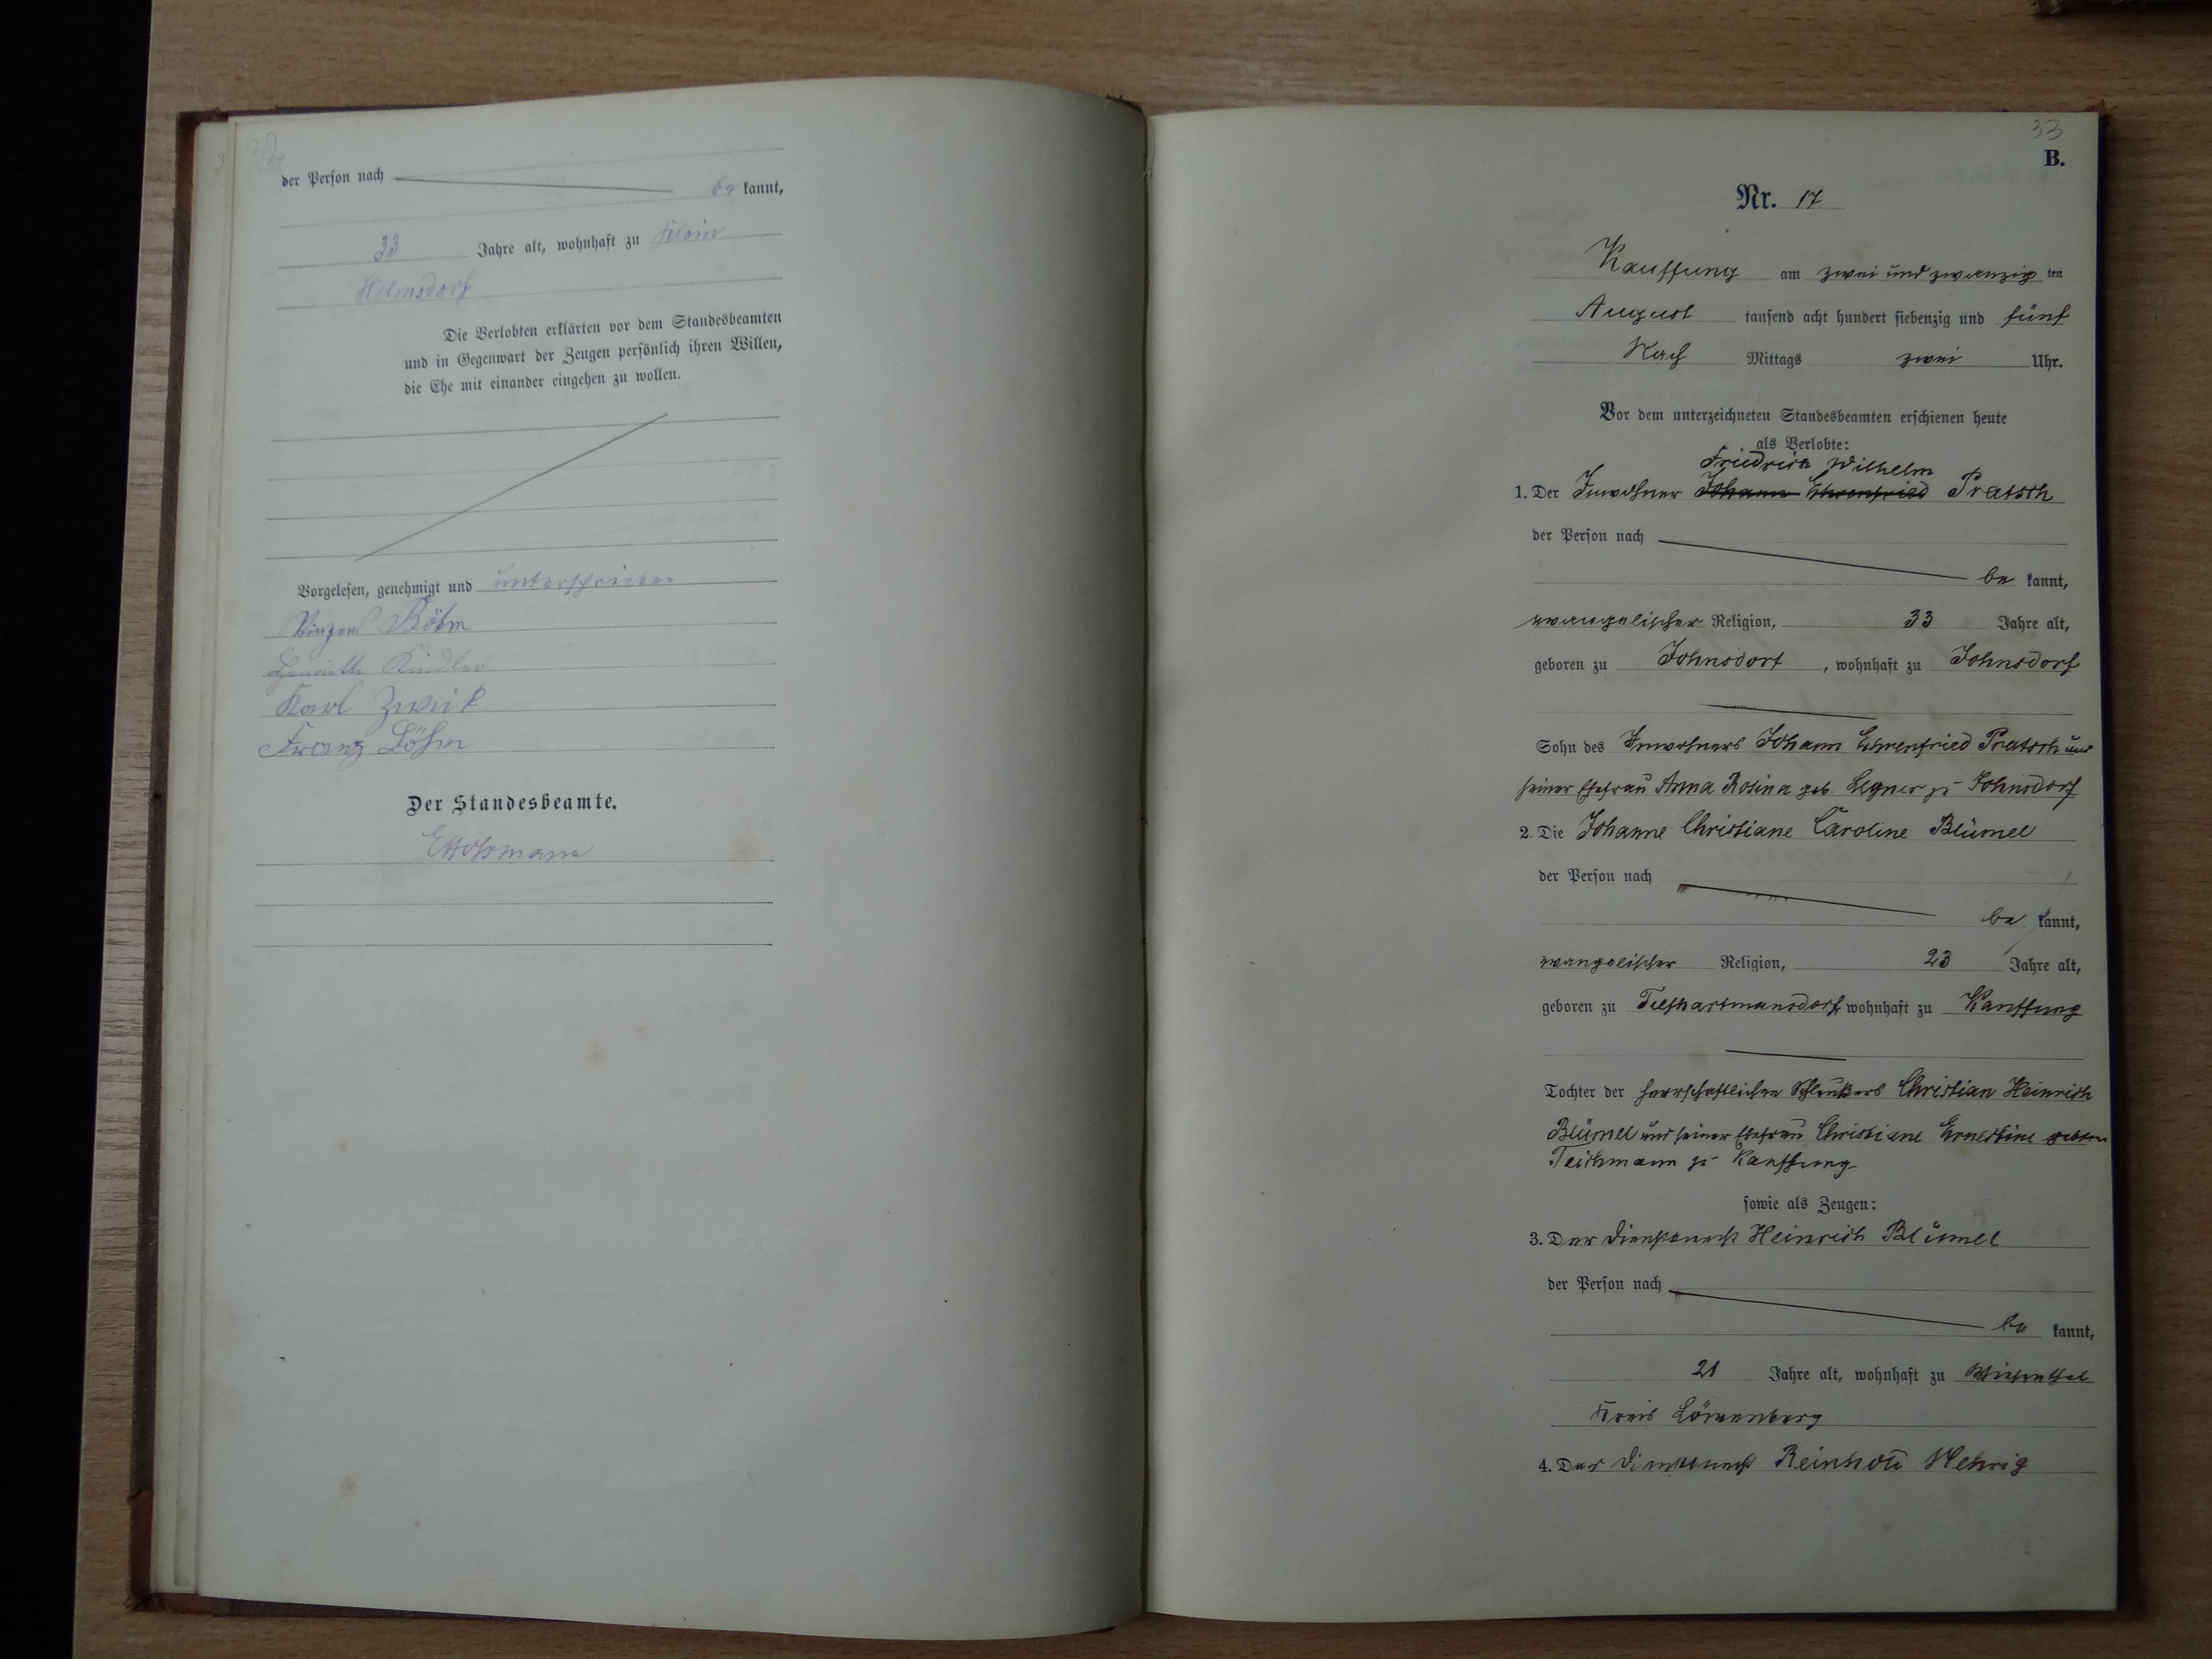 32
der Person nach be kannt,
33 Jahre alt, wohnhaft zu Klein
Helmsdorf
Die Verlobten erklärten vor dem Standesbeamten
und in Gegenwart der Zeugen persönlich ihren Willen,
die Ehe mit einander eingehen zu wollen.
Vorgelesen, genehmigt und unterschrieben
Böhm
Henriette Kindler
Karl Zweik
Franz Böhm
Der Standesbeamte.
33
B.
Nr. 17
Kauffung am zwei und zwanzig ten
August tausend acht hundert siebenzig und fünf
Nach Mittags zwei Uhr.
Vor dem unterzeichneten Standesbeamten erschienen heute
als Verlobte:
Friedrich Wilhelm
1. Der Inwohner Johann Ehrenfried Pratsch
der Person nach
be kannt,
evangelischer Religion, 33 Jahre alt,
geboren zu Johnsdorf, wohnhaft zu Johnsdorf
Sohn des Inwohners Johann Ehrenfried Pratsch und
seiner Ehefrau Anna Rosina geb. Legner zu Johnsdorf
2. Die Johanne Christiane Caroline Blümel
der Person nach
be kannt,
evangelischer Religion, 23 Jahre alt,
geboren zu Tiefhartmansdorf, wohnhaft zu Kauffung
Tochter der herrschaftlichen Christian Heinrich
Blümel und seiner Ehefrau Christiane Ernestine geborn
Teichmann zu Kauffung
sowie als Zeugen:
3. Der Dienstknecht Heinrich Blümel
der Person nach
be kannt,
21 Jahre alt, wohnhaft zu Wiesenthal
Kreis Löwenberg
4. Der Dienstknecht Reinhold Wehrig